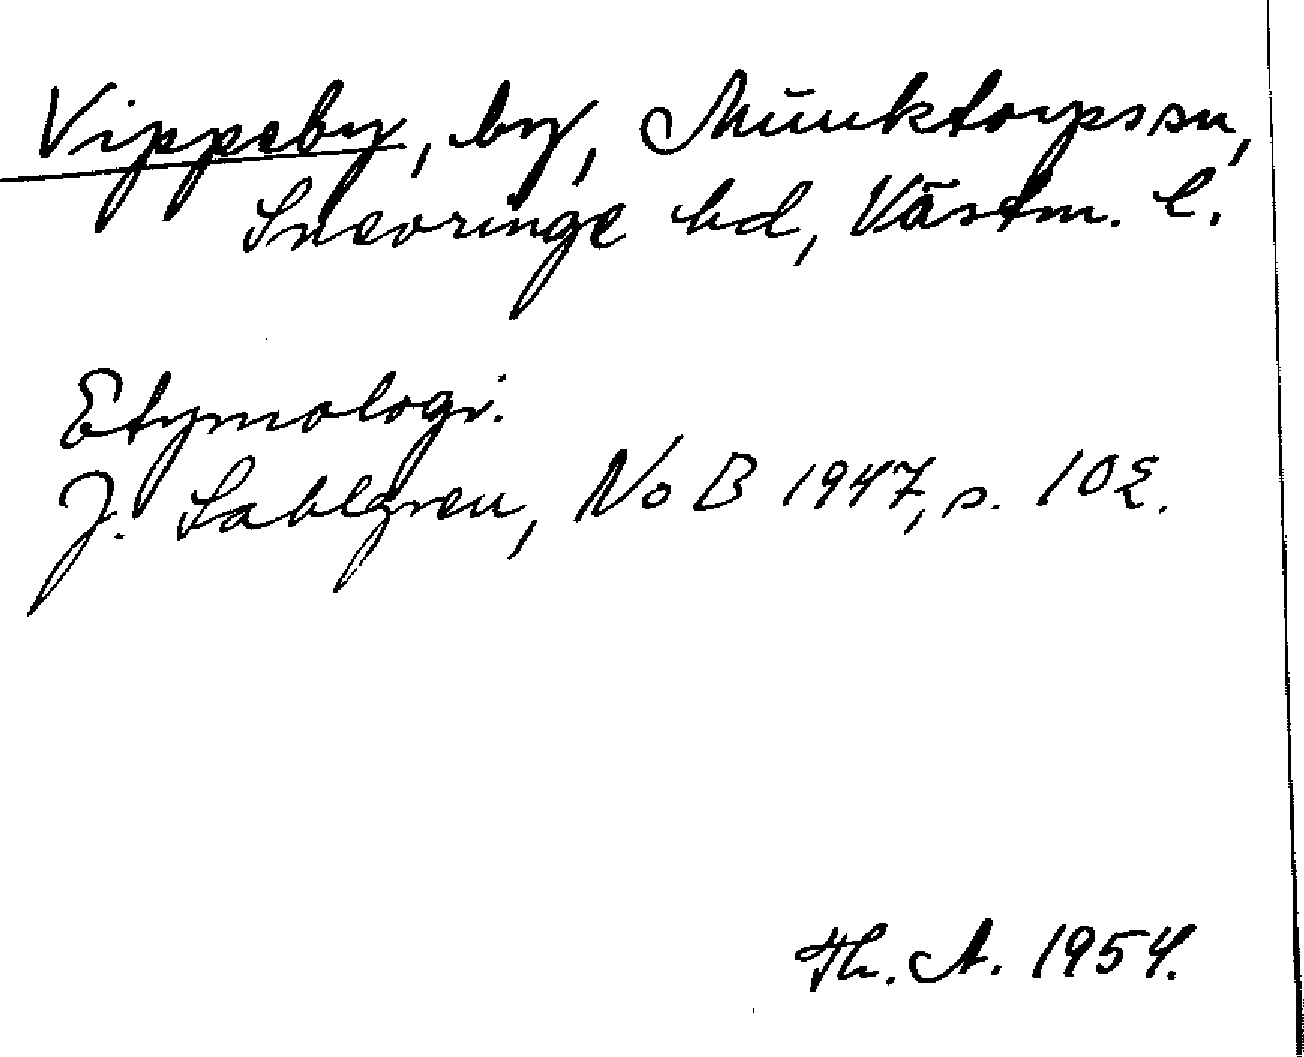 Vippeby, by, Munktorps sn,
Snevringe hd, Västm. l.
Etymologi.
J. Sahlgren, NoB 1947, s. 102.
Th. A. 1954.